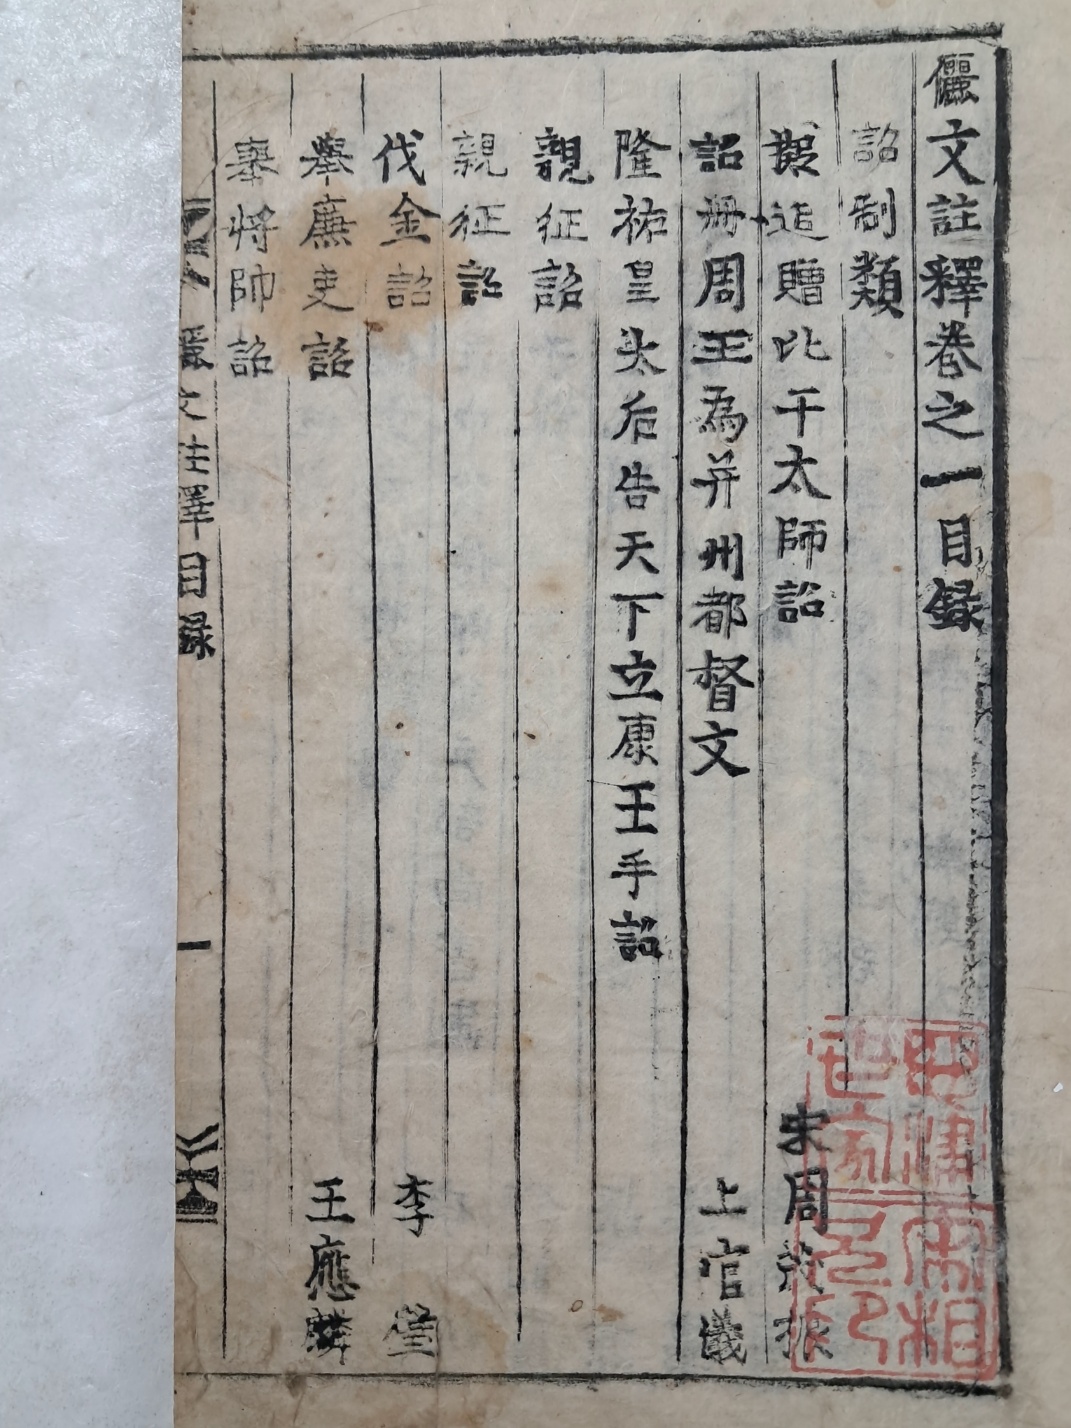 儷文註釋卷之一目錄
詔制類
擬追贈比干太師詔 宋周
詔冊周王為并州都督文 上官儀
隆祐皇太后告天下立康王手詔
親征詔
親征詔
伐金詔 李
舉廉吏詔 王應麟
舉將帥詔
儷文註釋目錄 一